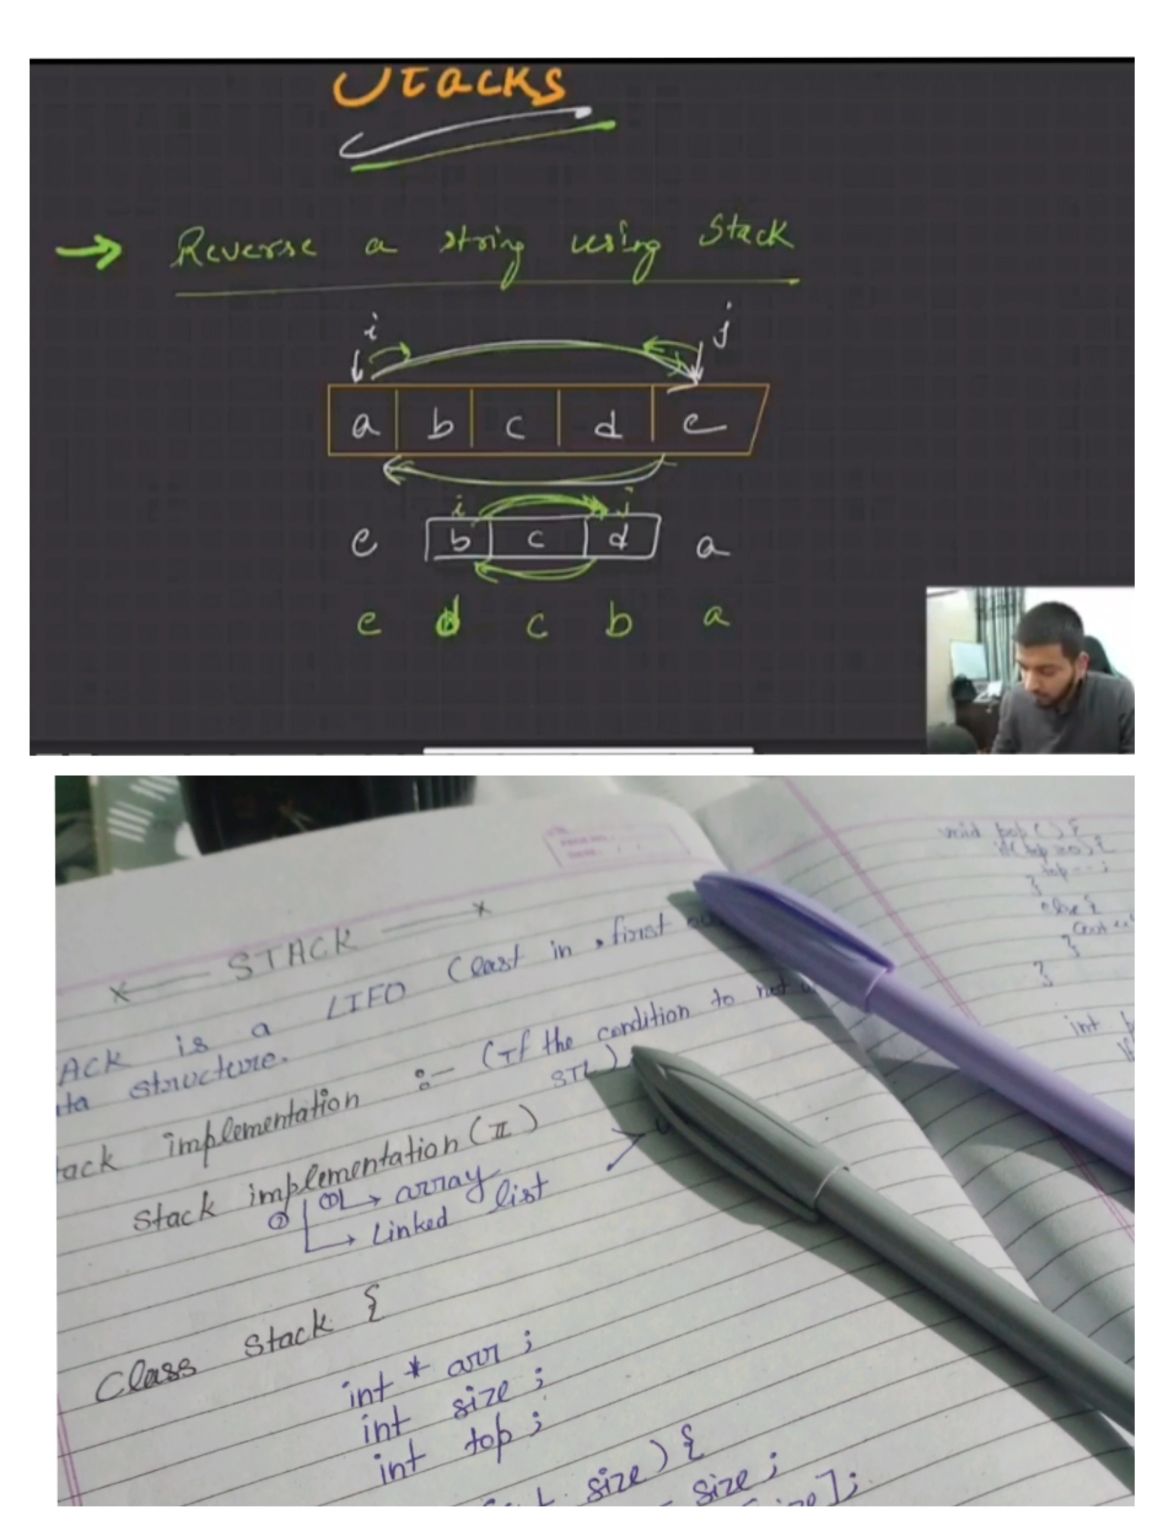 Stacks
→ Reverse a string using Stack
i j
a b c d e
i j
e b c d a
e d c b a
x—— STACK ——x
ACK is a LIFO (last in first
ta structure.
tack implementation :- (If the condition to not
STL)
Stack implementation (II)
① → array
② → Linked list
Class Stack {
int * arr ;
int size ;
int top ;
size) {
size ;
];
void pop() {
if(top >=0) {
top-- ;
}
else {
cout <<
}
}
int